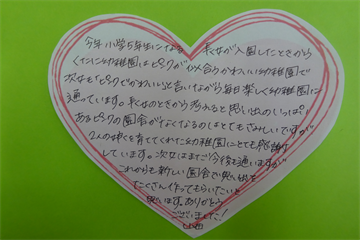 今年小学5年生になる 長女が入園したときから
くたにに幼稚園はピンクが似合うかわいい幼稚園で
次女も「ピンクでかわいい」と言いながら毎日楽しく幼稚園に
通っています。長女のときから考えると思い出のいっぱい
あるピンクの園舎がなくなるのはとてもさみしいですが
2人の娘を育ててくれた幼稚園にとても感謝
しています。次女はまだ今後も通いますが
これからも新しい園舎で思い出を
たくさん作ってもらいたいと
思います。ありがとう
ございました！